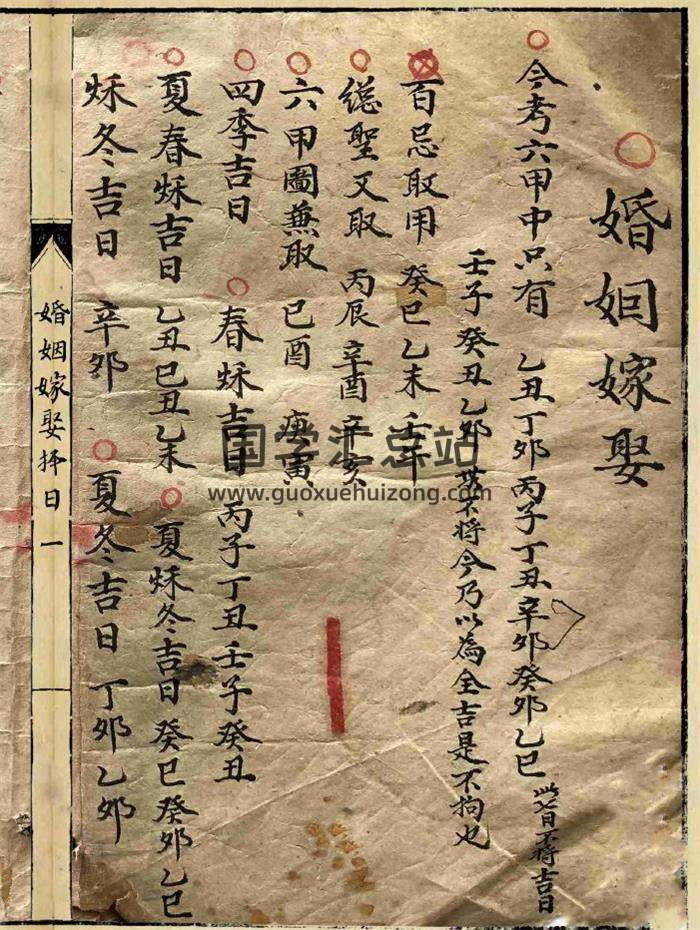 婚姻嫁娶
今考六甲中只有 乙丑丁夘丙子丁丑辛夘癸夘乙巳 此七日不将吉日
壬子癸丑乙夘 不将今乃以為全吉是不拘也
百忌取用 癸巳乙未壬午
緫聖又取 丙辰辛酉辛亥
六甲圖蒹取 已酉 庚寅
四季吉日 春秌吉日 丙子丁丑壬子癸丑
夏春秌吉日 乙丑巳丑乙未 夏秌冬吉日 癸巳癸夘乙巳
秌冬吉日 辛夘 夏冬吉日 丁夘乙夘
婚姻嫁娶择日一
国学汇总站
www.guoxuehuizong.com